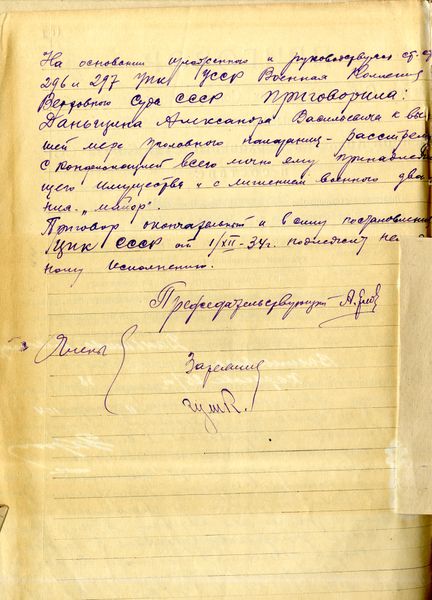 На основании изложенного и руководствуясь ст. ст.
296 и 297 УПК УССР Военная Коллегия
Верховного Суда СССР приговорила:
Даньщина Александра Васильевича к выс
шей мере уголовного наказания – расстрелу
с конфискацией всего лично ему принадлежа
щего имущества и с лишением военного зва
ния „майор".
Приговор окончательный и в силу постановления
ЦИК СССР от 1/XII-34г. подлежит не
ному исполнению.
Председательствующий
Члены